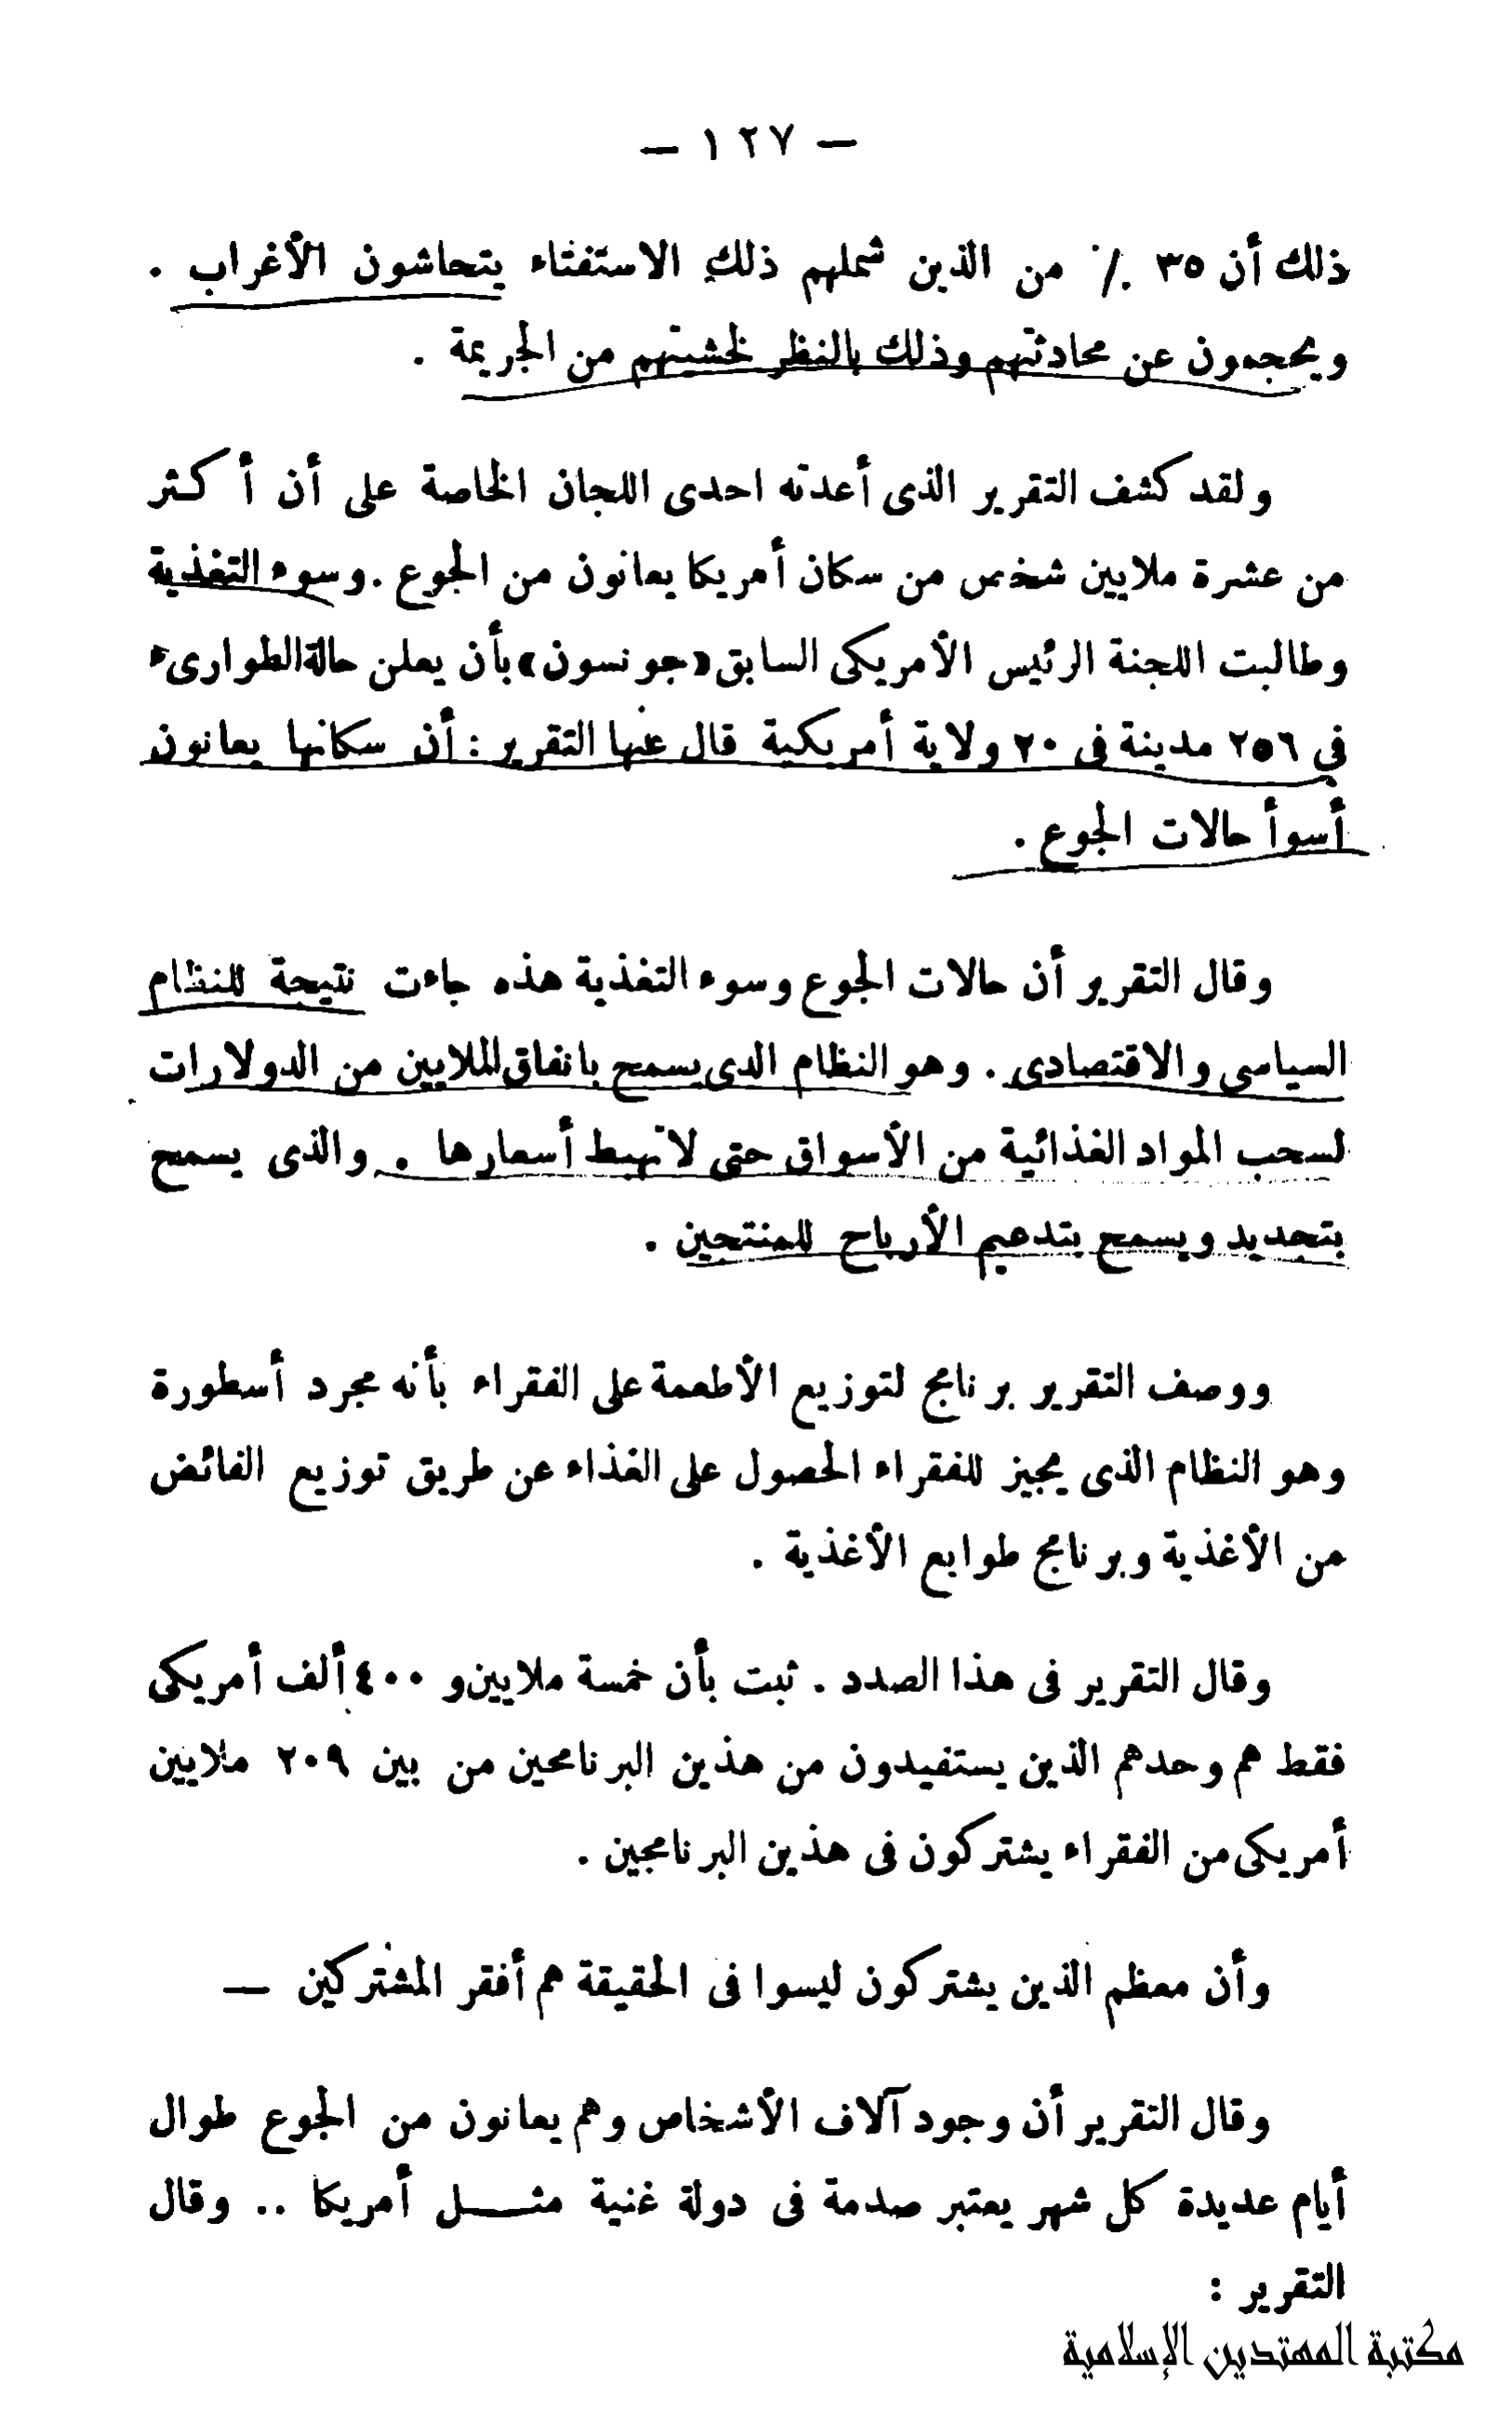 — ١٢٧ —
ذلك أن ٣٥ ٪ من الذين شملهم ذلك الاستفتاء يتحاشون الأغراب .
ويحجمون عن محادثتهم وذلك بالنظر لخشيتهم من الجريمة .
ولقد كشف التقرير الذى أعدته احدى اللجان الخاصة على أن أكثر
من عشرة ملايين شخص من سكان أمريكا يعانون من الجوع . وسوء التغذية
وطالبت اللجنة الرئيس الأمريكى السابق «جونسون» بأن يعلن حالة الطوارىء
في ٢٥٦ مدينة فى ٢٠ ولاية أمريكية قال عنها التقرير : أن سكانها يعانون
أسوأ حالات الجوع .
وقال التقرير أن حالات الجوع وسوء التغذية هذه جاءت نتيجة للنظام
السياسى والاقتصادى . وهو النظام الدى يسمح بانفاق الملايين من الدولارات
لسحب المواد الغذائية من الأسواق حتى لا تهبط أسعارها . والذى يسمح
بتحديد ويسمح بتدعيم الأرباح للمنتجين .
ووصف التقرير برنامج لتوزيع الأطعمة على الفقراء بأنه مجرد أسطورة
وهو النظام الذى يجيز للفقراء الحصول على الغذاء عن طريق توزيع الفائض
من الأغذية وبرنامج طوابع الأغذية .
وقال التقرير فى هذا الصدد . ثبت بأن خمسة ملايين و ٤٠٠ ألف أمريكى
فقط هم وحدهم الذين يستفيدون من هذين البرنامحين من بين ٢٠٩ ملايين
أمريكى من الفقراء يشتركون فى هذين البرنامجين .
وأن معظم الذين يشتركون ليسوا فى الحقيقة هم أفقر المشتركين —
وقال التقرير أن وجود آلاف الأشخاص وهم يعانون من الجوع طوال
أيام عديدة كل شهر يعتبر صدمة فى دولة غنية مثـــل أمريكا .. وقال
التقرير :
مكتبة المهتدين الإسلامية